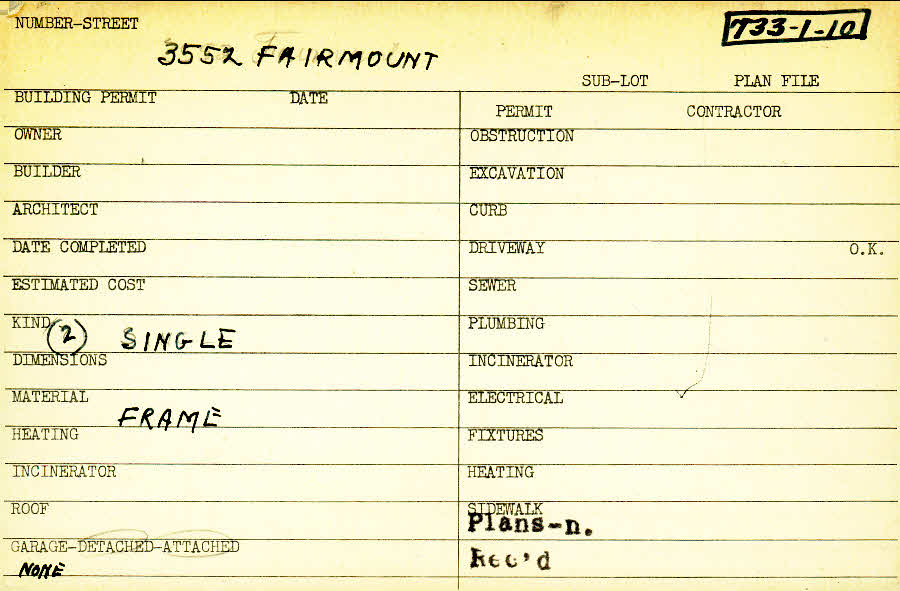 NUMBER-STREET
733-1-10
3552 FAIRMOUNT
SUB-LOT PLAN FILE
BUILDING PERMIT DATE
PERMIT CONTRACTOR
OWNER
OBSTRUCTION
BUILDER
EXCAVATION
ARCHITECT
CURB
DATE COMPLETED
DRIVEWAY O.K.
ESTIMATED COST
SEWER
KIND (2) SINGLE
PLUMBING
DIMENSIONS
INCINERATOR
MATERIAL FRAME
ELECTRICAL
HEATING
FIXTURES
INCINERATOR
HEATING
ROOF
SIDEWALK
Plans-n.
GARAGE-DETACHED-ATTACHED
Rec'd
NONE